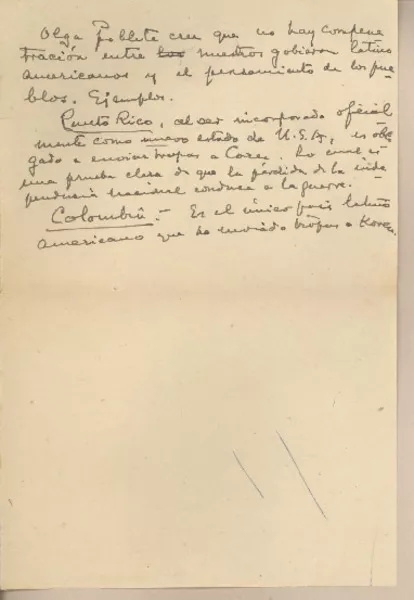 Olga Poblete cree que no hay compene
tración entre los nuestros gobiernos latino
americanos y el pensamiento de los pue
blos. Ejemplos.
Puerto Rico, al ser incorporado oficial
mente como nuevo estado de U.S.A., es obli
gado a enviar tropas a Corea. Lo cual es
una prueba clara de que la pérdida de la inde
pendencia nacional conduce a la guerra.
Colombia.- Es el único país latino
americano que ha enviado tropas a Korea.